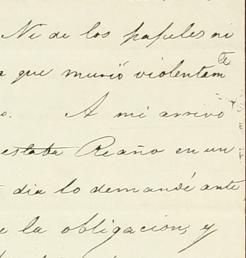 Ni de los papeles ni
que murió violentam.te
A mi arrivo
estaba Reaño en un
dia lo demandé ante
la obligacion, y